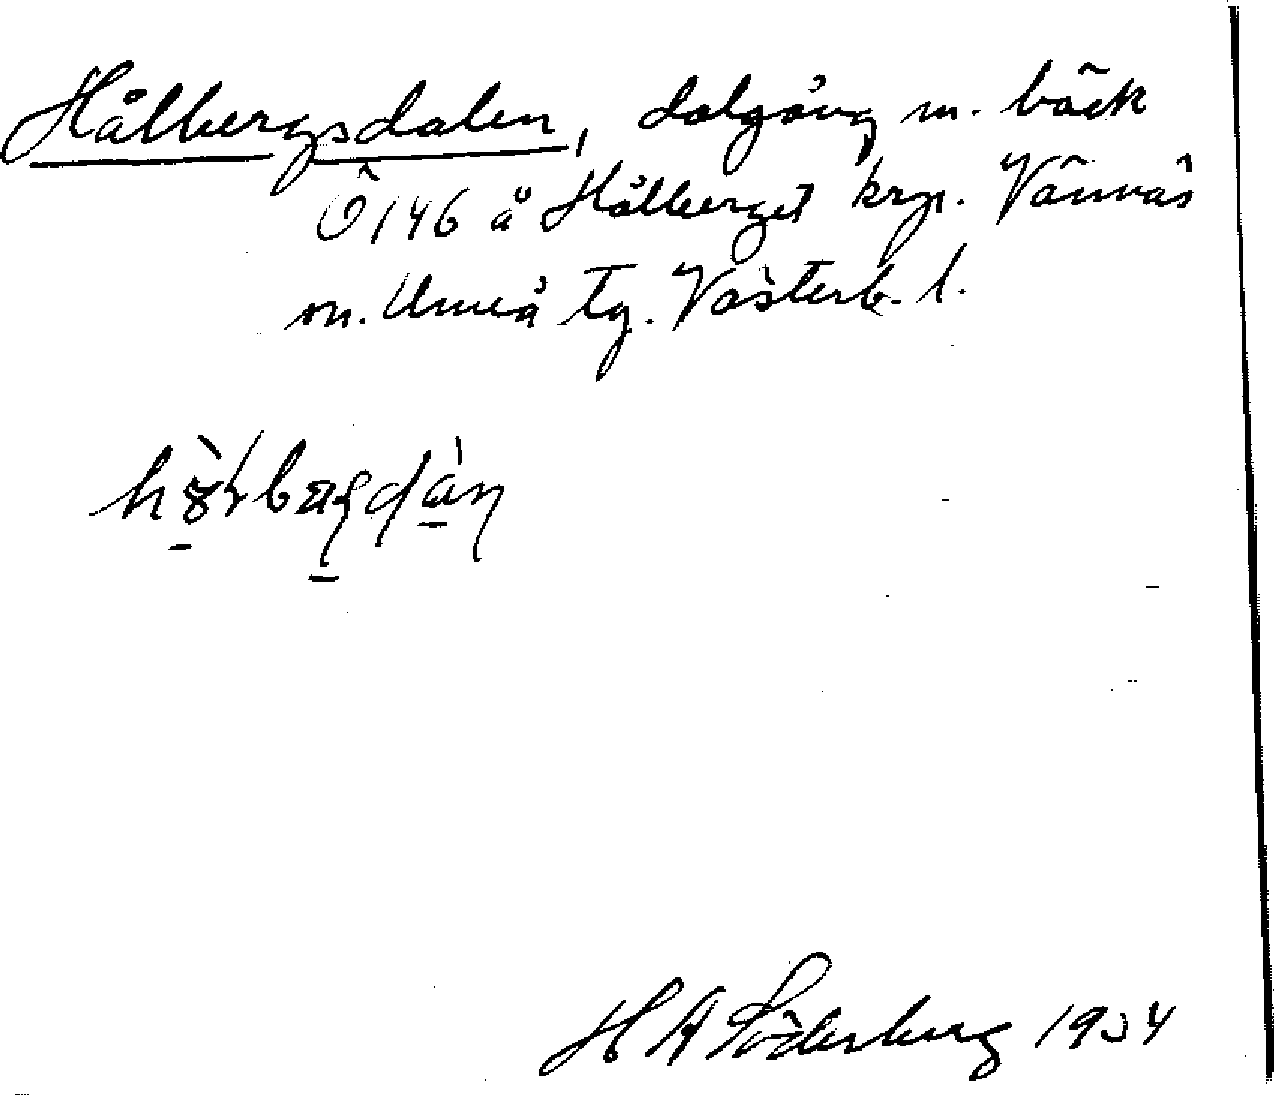 Hålbergsdalen, dalgång m. bäck
Ö 146 å Hålberget krp. Vännäs
sn. Umeå tg. Västerb. l.
H A Söderberg 1934